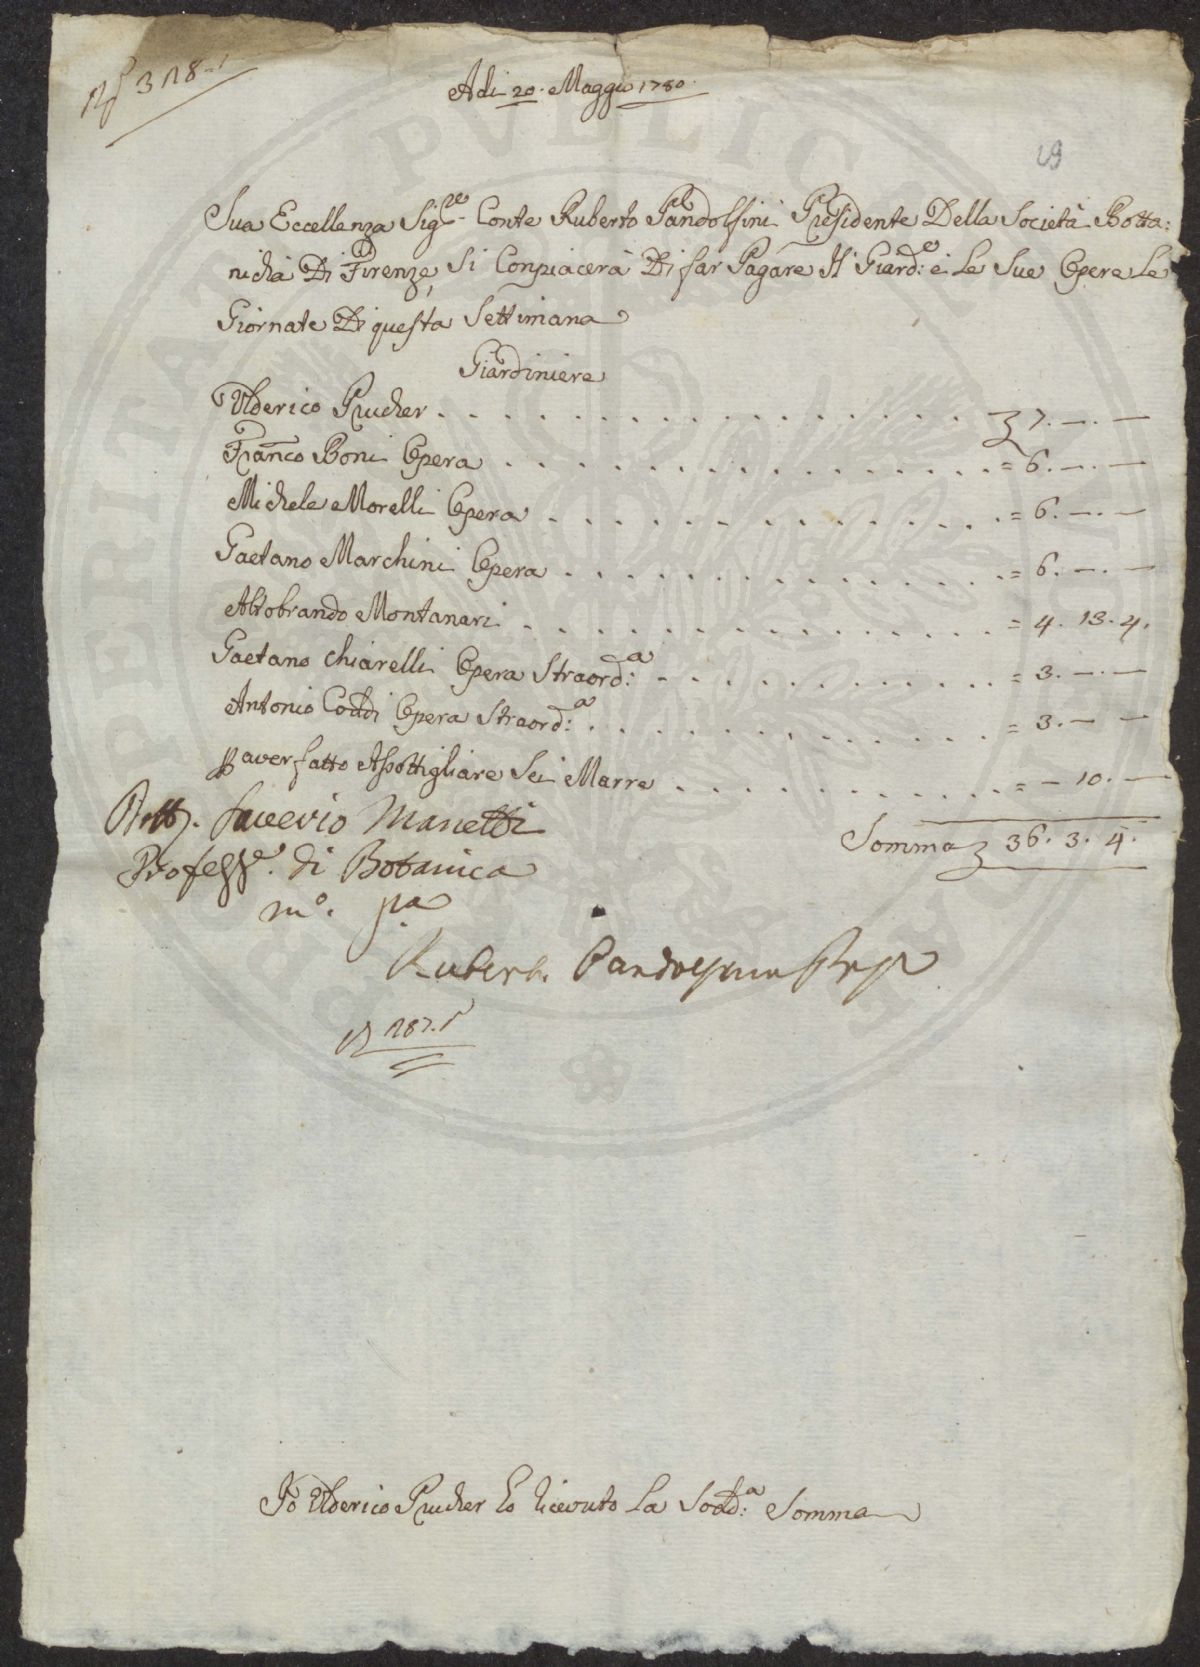 Adi 20. Maggio 1780.
19
Sua Eccellenza Sig.re Conte Ruberto Pandolfini Presidente Della Società Botta:
nicha Di Firenze, Si Conpiacerà Di far Pagare Il Giard:e e Le Sue Opere Le
Giornate Di questa Settimana
Giardiniere
Ulderico Prucher . . . . . . . . 7. — . —
Franco Boni Opera . . . . . . . . = 6. — . —
Michele Morelli Opera . . . . . . . . = 6. — . —
Gaetano Marchini Opera . . . . . . . . = 6. — . —
Aldobrando Montanari . . . . . . . . = 4. 13. 4.
Gaetano Chiarelli Opera Straord:a . . . . . . . . = 3. — . —
Antonio Coddi Opera Straord:a . . . . . . . . = 3. — —
p aver fatto Asottigliare Sei Marre . . . . . . . . = — 10. —
Somma 36. 3. 4.
Dott. Saverio Manetti
Profess.e di Botanica
m.o p.a
Ruberto Pandolfini Pres
187.
Io Ulderico Prucher ho ricevuto La Sodd:a Somma
PERITAT PVBLIC